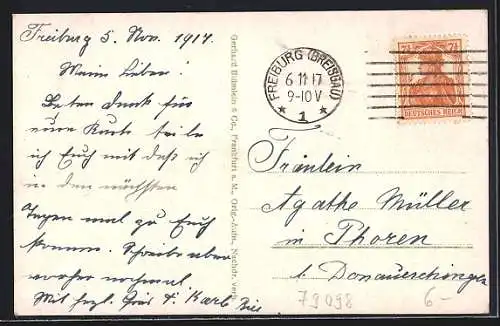 Freiburg 5. Nov. 1917.
Meine Lieben!
Besten Dank für
eure Karte teile
ich Euch mit daß ich
in den nächsten
Tagen mal zu Euch
komme. Schreibe aber
vorher nochmal.
Mit hzgl. Gruß
Gerhard Blümlein & Co., Frankfurt a. M., Orig.-Aufn., Nachdr. verb.
FREIBURG (BREISGAU)
6 11 17
9-10 V
* 1 *
7½ 7½
DEUTSCHES REICH
Fräulein
Agathe Müller
in Phoren
b. Donaueschingen
79098
6-